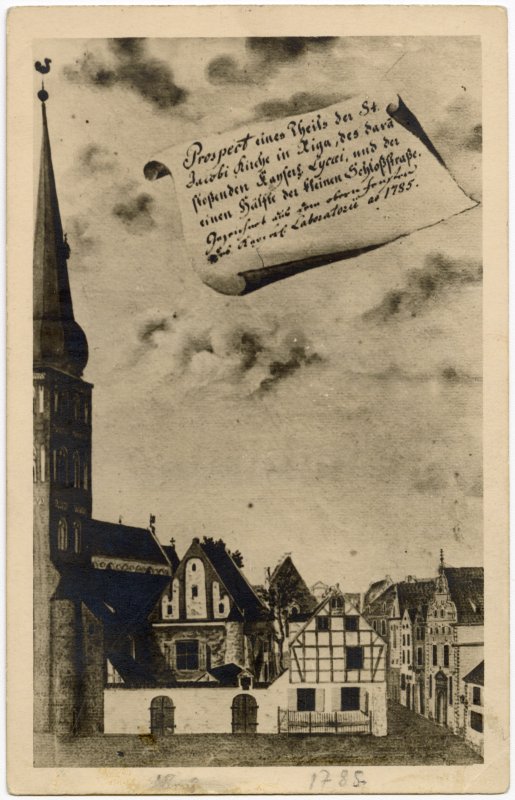 Prospect eines Theils der St.
Jacobi Kirche in Riga, des dara
stoßenden Kayserl Lycei, und der
einen Hälfte der kleinen Schloßstraße.
Gezeichnet aus dem obern Fenster
des Laboratorii ao 1785.
1785